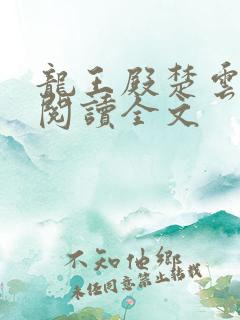 龍王殿楚雲
閱讀全文
不知他鄉
未經同意禁止轉載